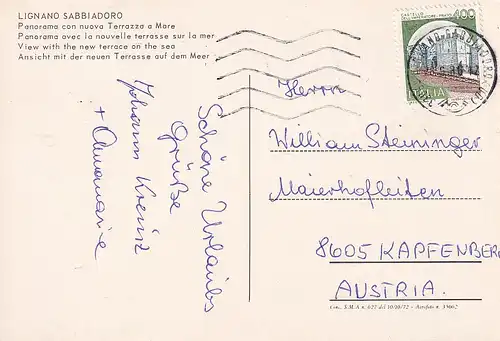 LIGNANO SABBIADORO
Panorama con nuova Terrazza a Mare
Panorama avec la nouvelle terrasse sur la mer
View with the new terrace on the sea
Ansicht mit der neuen Terrasse auf dem Meer
Schöne Urlaubs
Grüße
Johann Kreinz
+ Annamaria
CASTELLO
DELL'IMPERATORE - PRATO
400
ITALIA
Herrn
William Steininger
Maierhofleiten
8605 KAPFENBERG
AUSTRIA.
S.M.A n. 627 del 10/10/72 - Aerofoto n. 39062